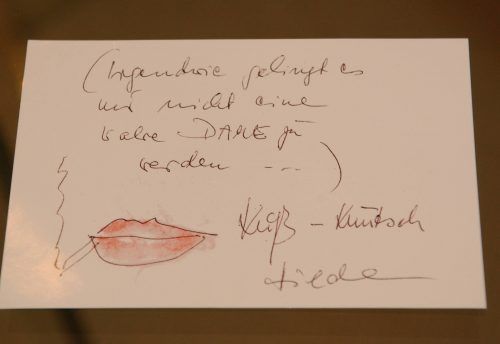 (Irgendwie gelingt es
mir nicht eine
wahre DAME zu
werden ---)
Küß - Knutsch